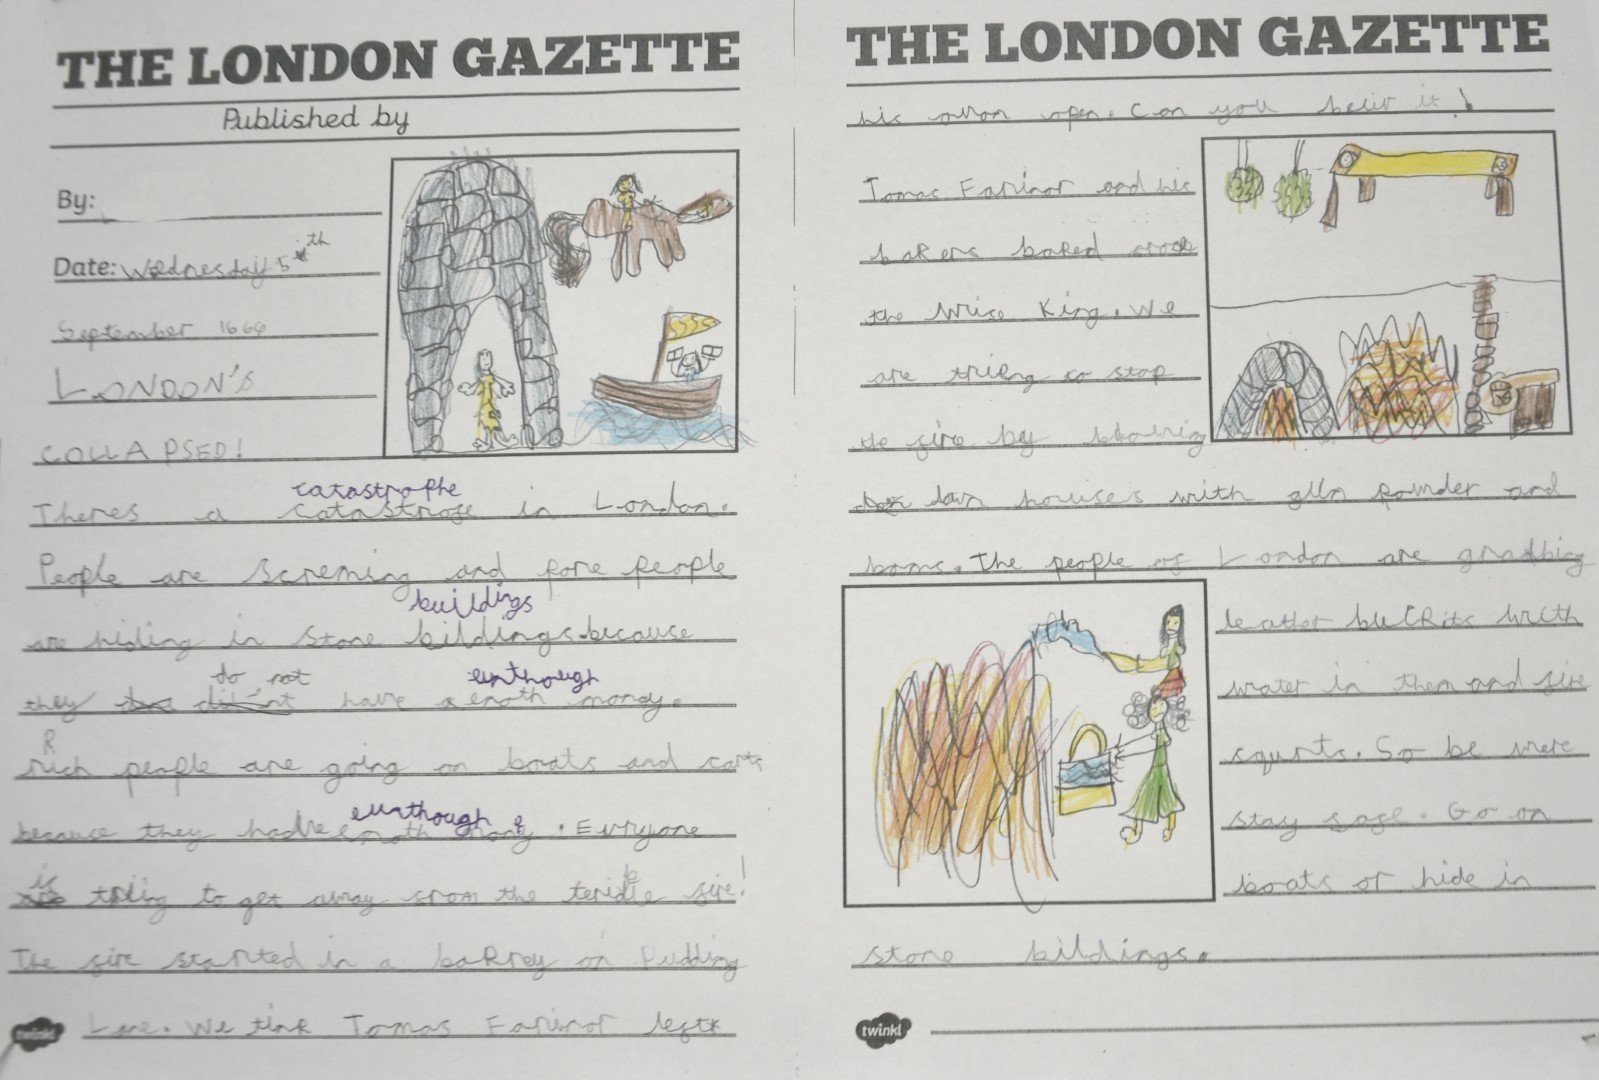 THE LONDON GAZETTE
Published by
By:
Date: Wednesday 5th
September 1666
LONDON'S
COLLAPSED!
catastrophe
Theres a catastrofe in London.
People are screming and pore people
buildings
are hiding in stone bildings because
do not eunthough
they didn't have enoth money.
R
rich people are going on boats and carts
eunthough
because they have enoth mony. Evryone
is be
triing to get away from the terible fire!
The fire started in a barkey on Pudding
Lane. We tink Tomas Farinor leftr
twinkl
THE LONDON GAZETTE
his ovon open. Can you beliv it!
Tomas Farinor and his
bakers baked
the wrise King. We
are triing to stop
the fire by blowing
dawn houses with gun powder and
boms. The people of London are grabbing
leather buckits with
water in them and fire
squrts. So be were
stay safe. Go on
boats or hide in
stone bildings.
twinkl